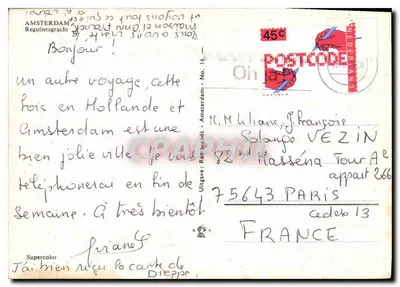 AMSTERDAM
Reguliersgracht
Bonjour !
un autre voyage, cette
fois en Hollande et
Amsterdam est une
bien jolie ville. Je vous
téléphonerai en fin de
semaine. A très bientôt
J'ai bien reçu la carte de
Dieppe.
Supercolor
Nous avons visité la
maison d'Anne Franck
et voyons tout ce qui
Amsterdam - No.
45c
POSTCODE
NEDERLAND
M. M. Liliane, Françoise
Solange VEZIN
82 Masséna Tour A2
appart 266
75643 PARIS
Cedex 13
FRANCE